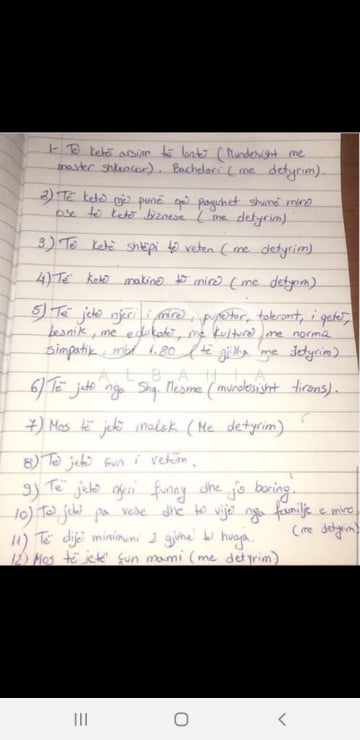 1- Të ketë arsim të lartë (Mundësisht me
master shkencor). Bachelori (me detyrim).
2) Të ketë një punë që paguhet shumë mirë
ose të ketë biznese (me detyrim)
3) Të ketë shtëpi të veten (me detyrim)
4) Të ketë makinë të mirë (me detyrim)
5) Të jetë njeri i mirë, punëtor, tolerant, i qetë,
besnik, me edukatë, me kulturë, me norma
simpatik, mbi 1.80 (të gjitha me detyrim)
ALBANIA
6) Të jetë nga Shq. Mesme (mundësisht tirons).
7) Mos të jetë inatok (Me detyrim)
8) Të jetë çun i vetëm.
9) Të jetë njeri funny dhe jo boring
10) Të jetë pa vese dhe të vijë nga familje e mirë
(me detyrim)
11) Të dijë minimumi 2 gjuhë të huaja.
12) Mos të jetë çun mami (me detyrim)